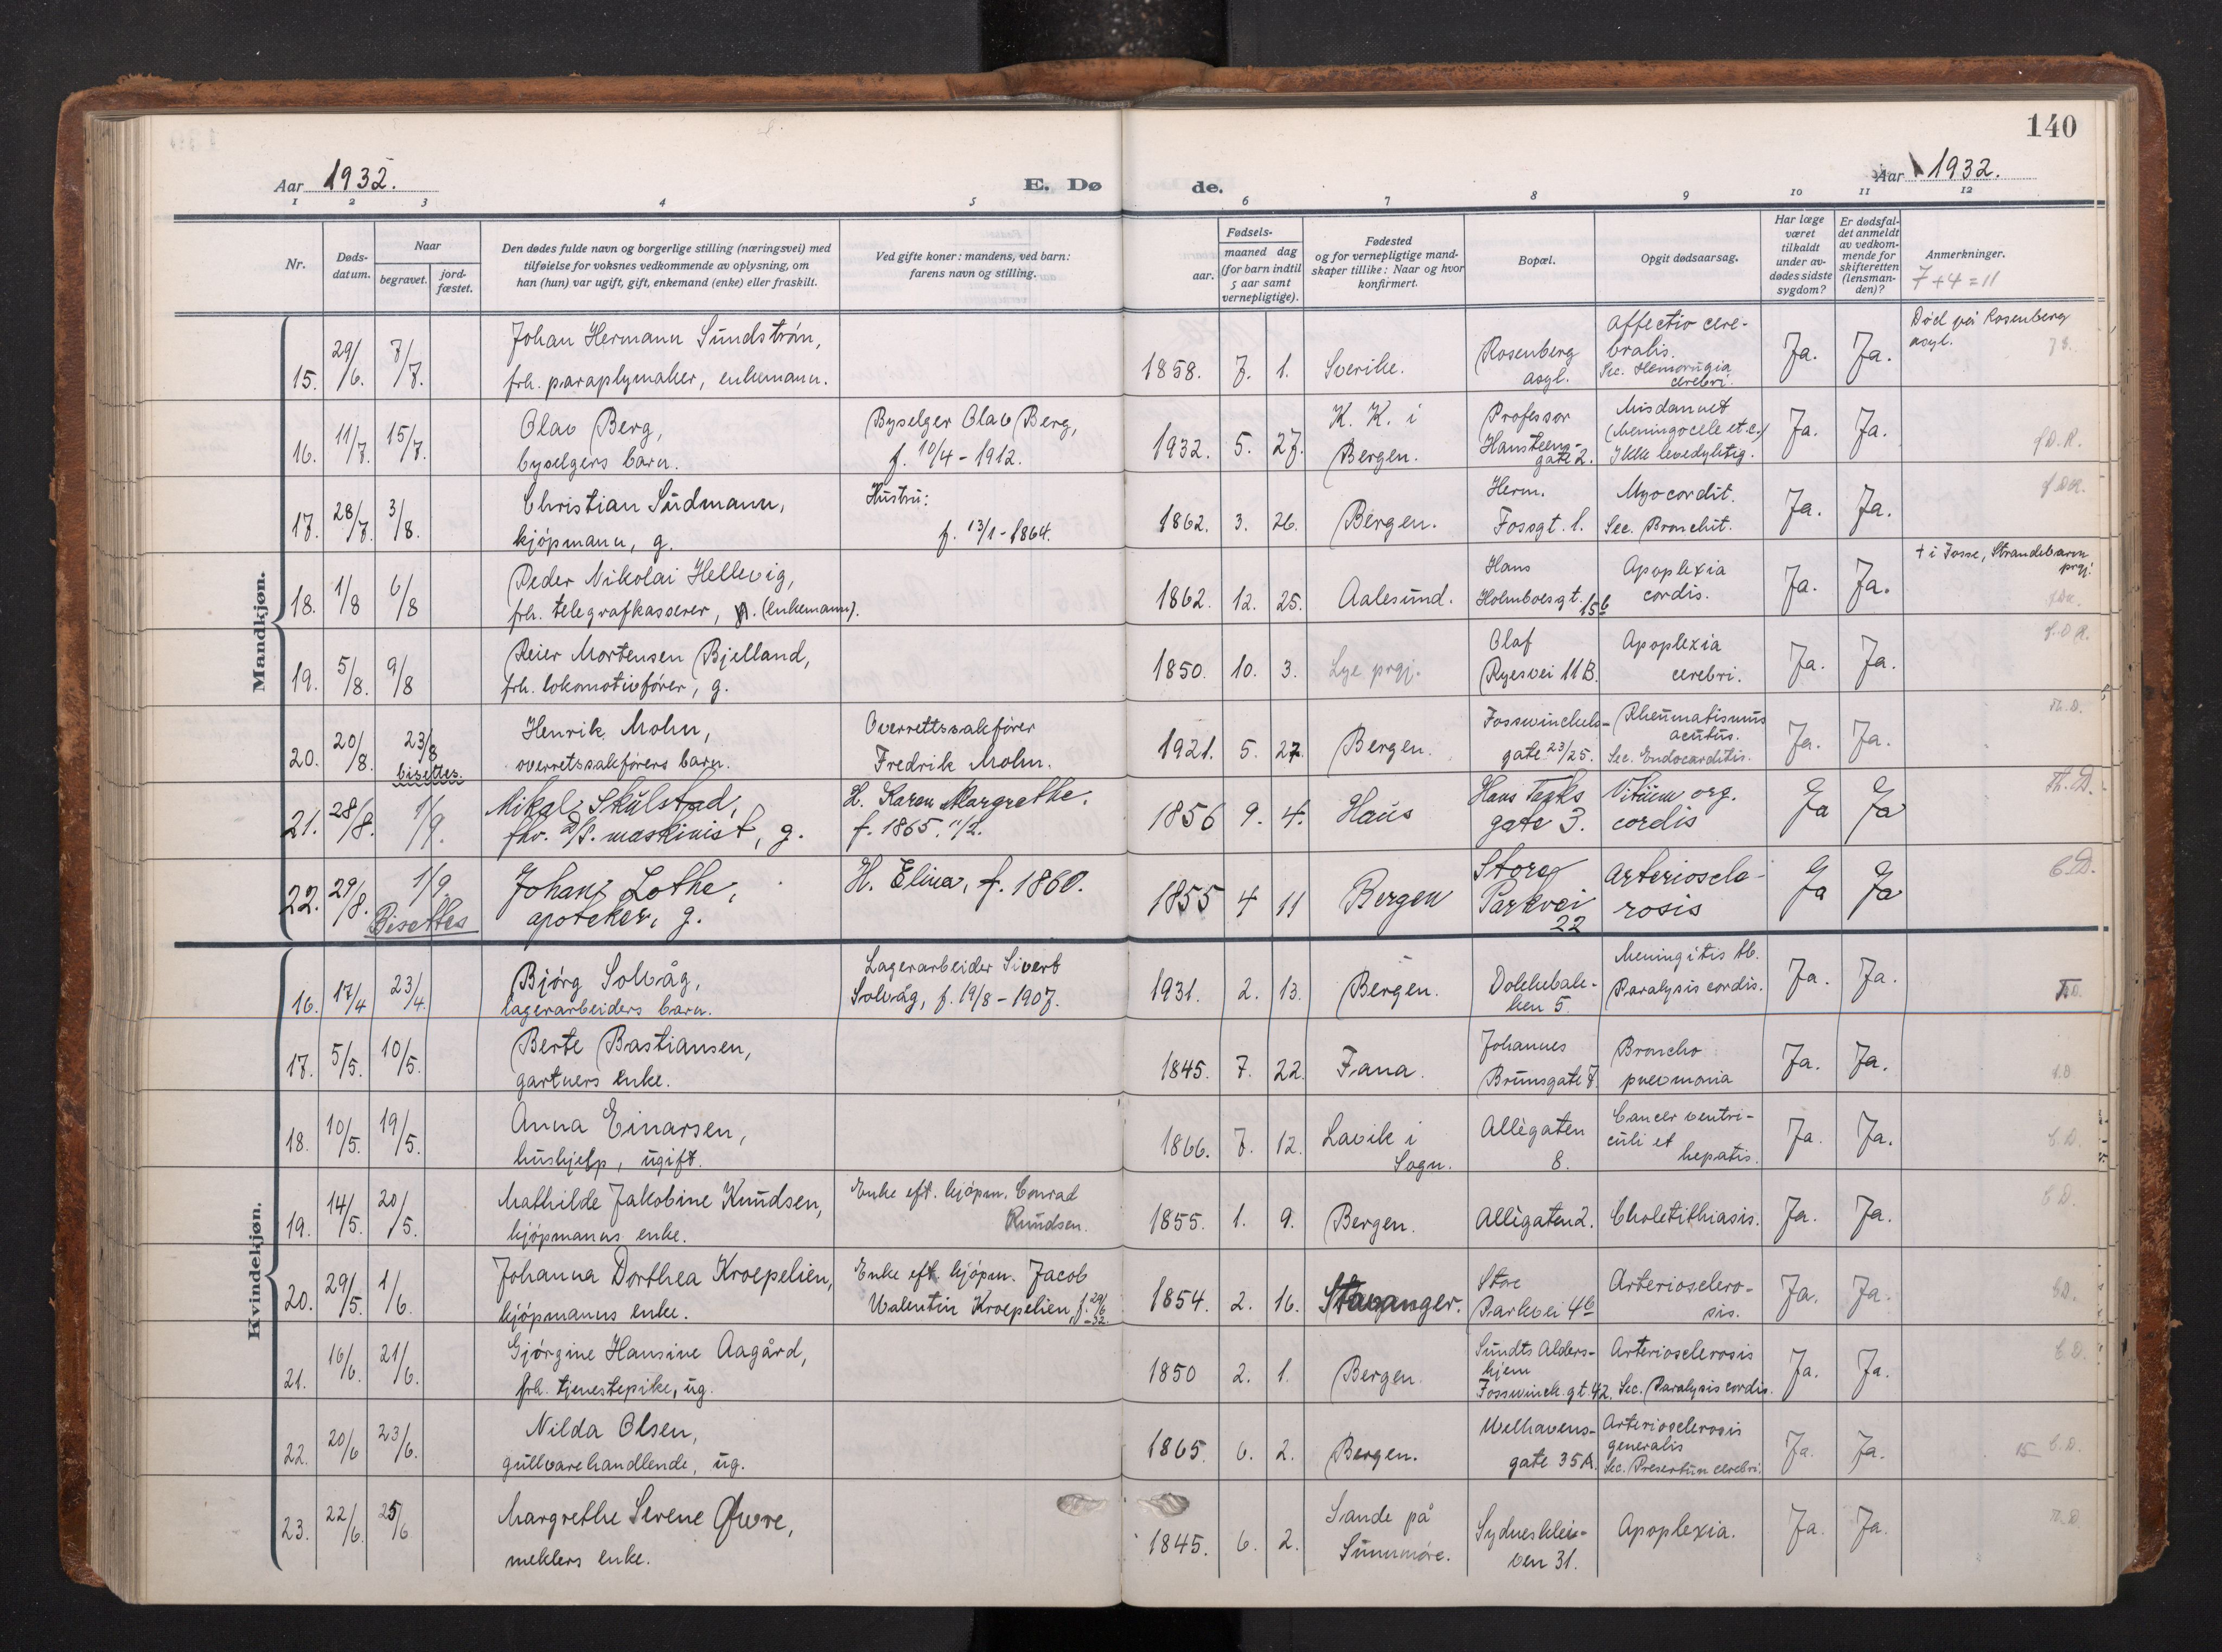 140
Aar 1932.
E. Døde.
Aar 1932.
1 2 3 4 5 6 7 8 9 10 11 12
Nr.
Døds-
datum.
Naar
begravet.
jord-
fæstet.
Den dødes fulde navn og borgerlige stilling (næringsvei) med
tilføielse for voksnes vedkommende av oplysning, om
han (hun) var ugift, gift, enkemand (enke) eller fraskilt.
Ved gifte koner: mandens, ved barn:
farens navn og stilling.
Fødsels-
aar.
maaned dag
(for barn indtil
5 aar samt
vernepligtige).
Fødested
og for vernepligtige mand-
skaper tillike: Naar og hvor
konfirmert.
Bopæl.
Opgit dødsaarsag.
Har læge
været
tilkaldt
under av-
dødes sidste
sygdom?
Er dødsfal-
det anmeldt
av vedkom-
mende for
skifteretten
(lensman-
den)?
Anmerkninger.
7+4=11
Mandkjøn.
15. 29/6. 7/7. Johan Hermann Sundstrøn,
frh. paraplymaker, enkemann.
1858. 7. 1. Sverike. Rosenberg
asyl.
Affectio cere-
bralis.
Sec. Hemorrugia
cerebri.
Ja. Ja. Død på Rosenberg
asyl.
16. 11/7. 15/7. Olav Berg,
byselgers barn.
Byselger Olav Berg,
f. 10/4 - 1912.
1932. 5. 27. K. K. i
Bergen.
Professor
Hansteens-
gate 2.
Misdannet
(Meningocele et.c.)
Ikke levedyktig.
Ja. Ja. f.D.R.
17. 28/7. 3/8. Christian Sudmann,
kjøpmann, g.
Hustru:
f. 13/1 - 1864.
1862. 3. 26. Bergen. Herm.
Fossgt. 1.
Myocordit.
Sec. Bronchit.
Ja. Ja.
18. 1/8 6/8 Peder Nikolai Hellevig,
frh. telegrafkasserer, (enkemann).
1862. 12. 25. Aalesund. Hans
Holmboesgt. 15b
Apoplexia
cordis.
Ja. Ja. † i Fosse, Strandebarm
prgj.
19. 5/8. 9/8 Reier Mortensen Bjelland,
frh. lokomotivfører, g.
1850. 10. 3. Lye prgj. Olaf
Ryesvei 11B.
Apoplexia
cerebri.
Ja. Ja. f.D.R.
20. 20/8. 23/8
bisettes.
Henrik Mohn,
overretssakførers barn.
Overrettssakfører
Fredrik Mohn.
1921. 5. 27. Bergen. Fosswinckels-
gate 23/25.
Rheumatismus
acutus.
Sec. Endocarditis.
Ja. Ja. Th.D.
21. 28/8. 1/9. Mikal Skulstad,
fhv. D/S. maskinist, g.
H. Karen Margrethe.
f. 1865. 11/2.
1856 9. 4. Haus Hans Tanks
gate 3.
Vitium org.
cordis
Ja Ja Th.D.
22. 29/8. 1/9.
Bisettes
Johan Lothe,
apoteker, g.
H. Elina, f. 1860.
1855 4 11 Bergen Store
Parkvei
22
Arterioscle-
rosis
Ja Ja C.D.
Kvindekjøn.
16. 17/4 23/4. Bjørg Solvåg,
lagerarbeiders barn.
Lagerarbeider Sivert
Solvåg, f. 19/8 - 1907.
1931. 2. 13. Bergen. Dokkebak-
ken 5.
Meningitis tb.
Paralysis cordis.
Ja. Ja.
17. 5/5. 10/5. Berte Bastiansen,
gartners enke.
1845. 7. 22. Fana. Johannes
Brunsgate 7.
Broncho
pneumonia
Ja. Ja.
18. 10/5. 19/5. Anna Einarsen,
hushjelp, ugift.
1866. 7. 12. Lavik i
Sogn.
Allègaten
8.
Cancer ventri-
culi et
hepatis.
Ja. Ja. C.D.
19. 14/5. 20/5. Mathilde Jakobine Knudsen,
kjøpmanns enke.
Enke eft. kjøpm. Conrad
Knudsen.
1855. 1. 9. Bergen. Allègaten 2. Choletithiasis. Ja. Ja. C.D.
20. 29/5. 1/6. Johanna Dorthea Kroepelien,
kjøpmanns enke.
Enke eft. kjøpm. Jacob
Valentin Kroepelien,
1854. 2. 16. Stavanger. Store
Parkvei 4b
Arterioselero-
sis.
Ja. Ja. C.D.
21. 16/6. 21/6. Gjørgine Hansine Aagård,
frh. tjenestepike, ug.
1850 2. 1. Bergen. Sundts Alders-
hjem
Fosswinck.gt.42.
Arterioselerosis
Sec. Paralysis cordis.
Ja. Ja. C.D.
22. 20/6 23/6. Nilda Olsen,
gullvarehandlende, ug.
1865. 6. 2. Bergen. Welhavens-
gate 35A.
Arterioselerosis
generalis
Sec. Presertim cerebri.
Ja. Ja. 15 C.D.
23. 22/6. 25/6 Margrethe Serene Øwre,
meklers enke.
1845. 6. 2. Sande på
Sunnmøre.
Sydneskleι-
ven 31.
Apoplexia. Ja. Ja.